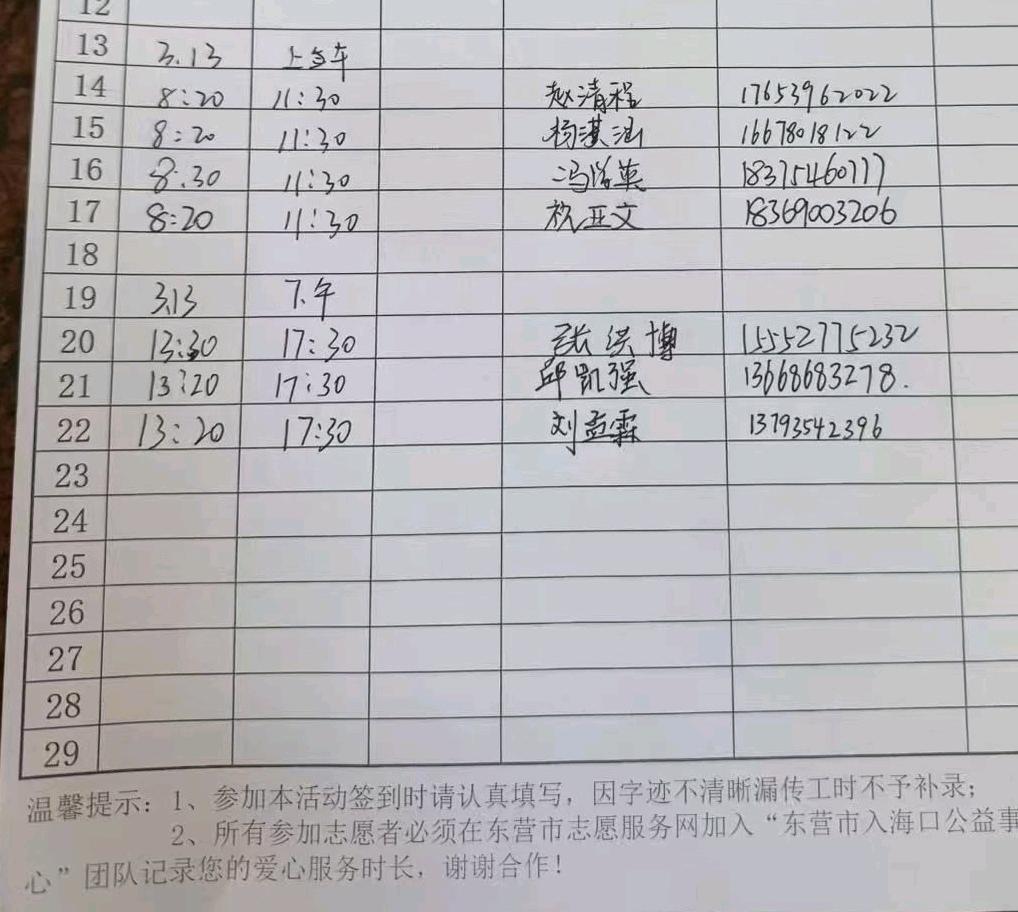 12
13 3.13 上午
14 8:20 11:30 赵清程 17653962022
15 8:20 11:30 杨淇涵 16678018122
16 8:30 11:30 冯 英 18375460777
17 8:20 11:30 祝亚文 18369003206
18
19 3.13 下午
20 13:30 17:30 张洪博 15552775232
21 13:20 17:30 邱凯强 13668683278.
22 13:20 17:30 刘孟霖 13793542396
23
24
25
26
27
28
29
温馨提示：1、参加本活动签到时请认真填写，因字迹不清晰漏传工时不予补录；
2、所有参加志愿者必须在东营市志愿服务网加入“东营市入海口公益事
心”团队记录您的爱心服务时长，谢谢合作！